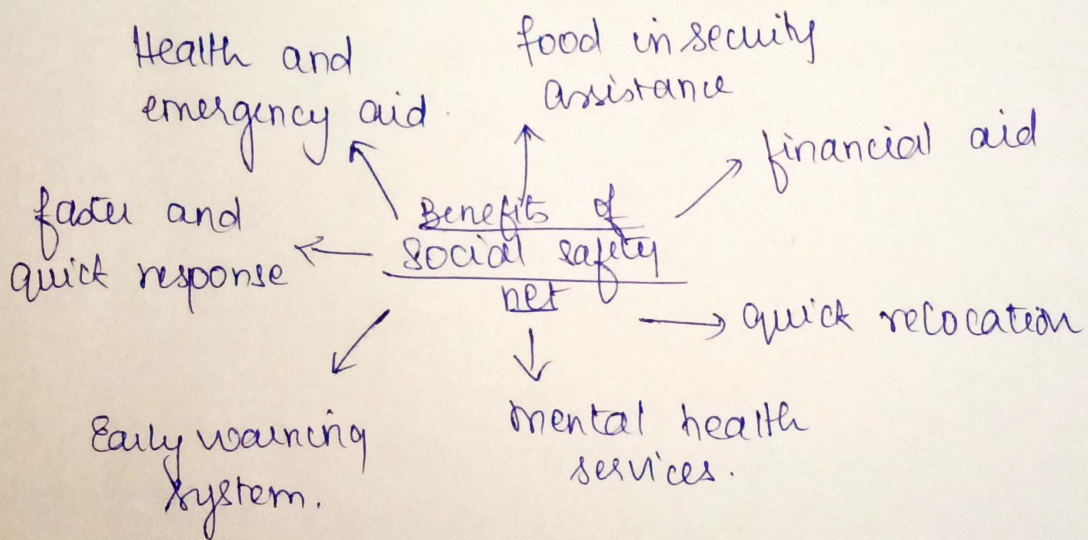 Health and
emergency aid.
food in secuity
assistance
financial aid
faster and
quick response
Benefits of
social safety
net
quick relocation
Early warning
system.
mental health
services.